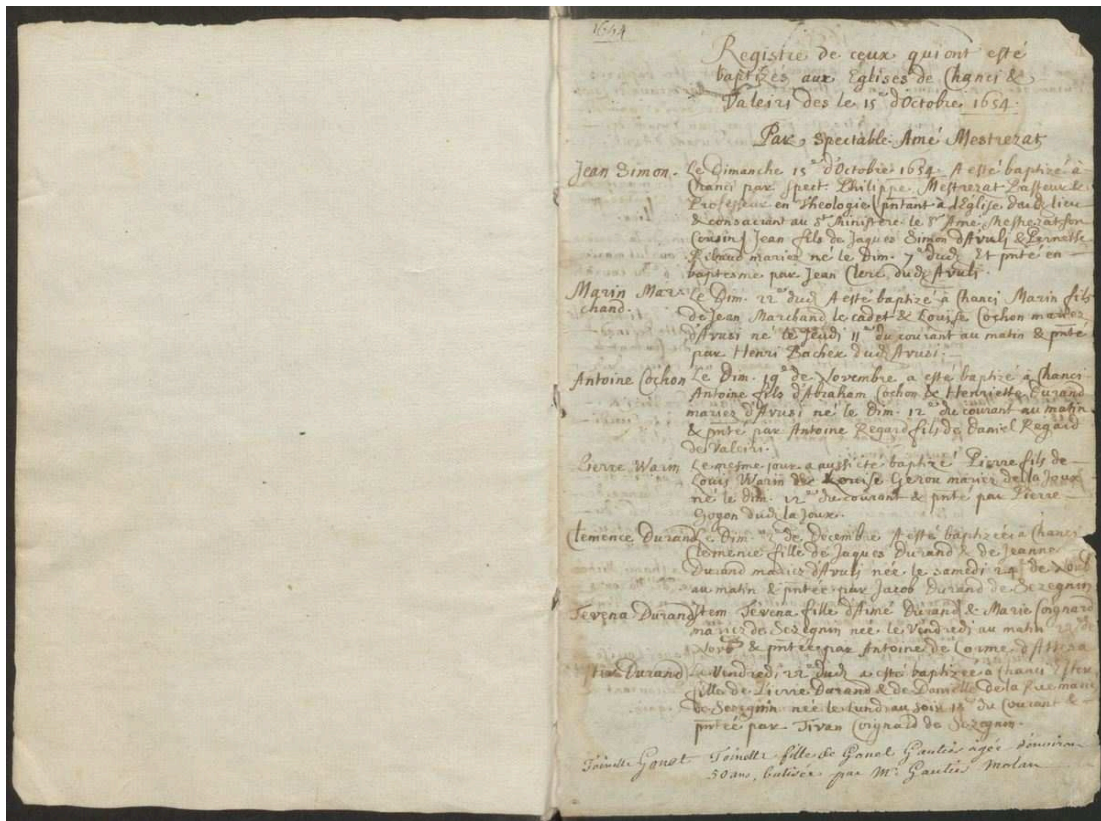 1654
Registre de ceux qui ont esté
baptizés aux Eglises de Chanci &
Valeiri des le 15 d'Octobre 1654.
Par Spectable Amé Mestrezat
Jean Simon. Le Dimanche 15 d'Octobre 1654 A esté baptizé à
Chanci par Spect. Philippe Mestrezat Pasteur &
Professeur en Theologie pntant à l'Eglise dud. lieu
& consacrant au St Ministere le Sr Amé Mestrezat son
Cousin Jean fils de Jaques Simon d'Avuli & Pernette
Ribaud mariez né le Dim. 7 dud. Et pnté en
baptesme par Jean Clerc dud. Avuli.
Marin Mar- Le Dim. 22 dud. A esté baptizé à Chanci Marin fils
chand. de Jean Marchand le cadet & Louise Cochon mariez
d'Avusi né le Jeudi 11 du courant au matin & pnté
par Henri Bachex dud. Avusi.
Antoine Cochon Le Dim. 19 de Novembre a esté baptizé à Chanci
Antoine fils d'Abraham Cochon & Henriette Durand
mariez d'Avusi né le Dim. 12 du courant au matin
& pnté par Antoine Regard fils de Daniel Regard
de Valeiri.
Pierre Warin Le mesme jour a aussi été baptizé Pierre fils de
Louis Warin & de Louise Gerou mariez de la Joux
né le Dim. 12 du courant & pnté par Pierre
Gogon dud. la Joux.
Clemence Durand Le Dim. de Decembre A esté baptizée à Chanci
Clemence fille de Jaques Durand & de Jeanne
Durand mariez d'Avuli née le samedi 24 de Novb
au matin & pntée par Jacob Durand de Sezegnin
Tevena Durand Item Tevena fille d'Aimé Durand & Marie Coignard
mariez de Sezegnin née le Vendredi au matin 22 de
Novb & pntée par Antoine de Corme d'Attena
Ester Durand Le Vendredi 22 dud. a esté baptizée à Chanci Ester
fille de Pierre Durand & de Domille de la
de Sezegnin née le lundi au soir 18 du Courant &
pntée par Tivan Coignard de Sezegnin.
Toinette Gonet Toinette fille de Gonel Gautier agée d'environ
50 ans, batisée par Mr Gautier